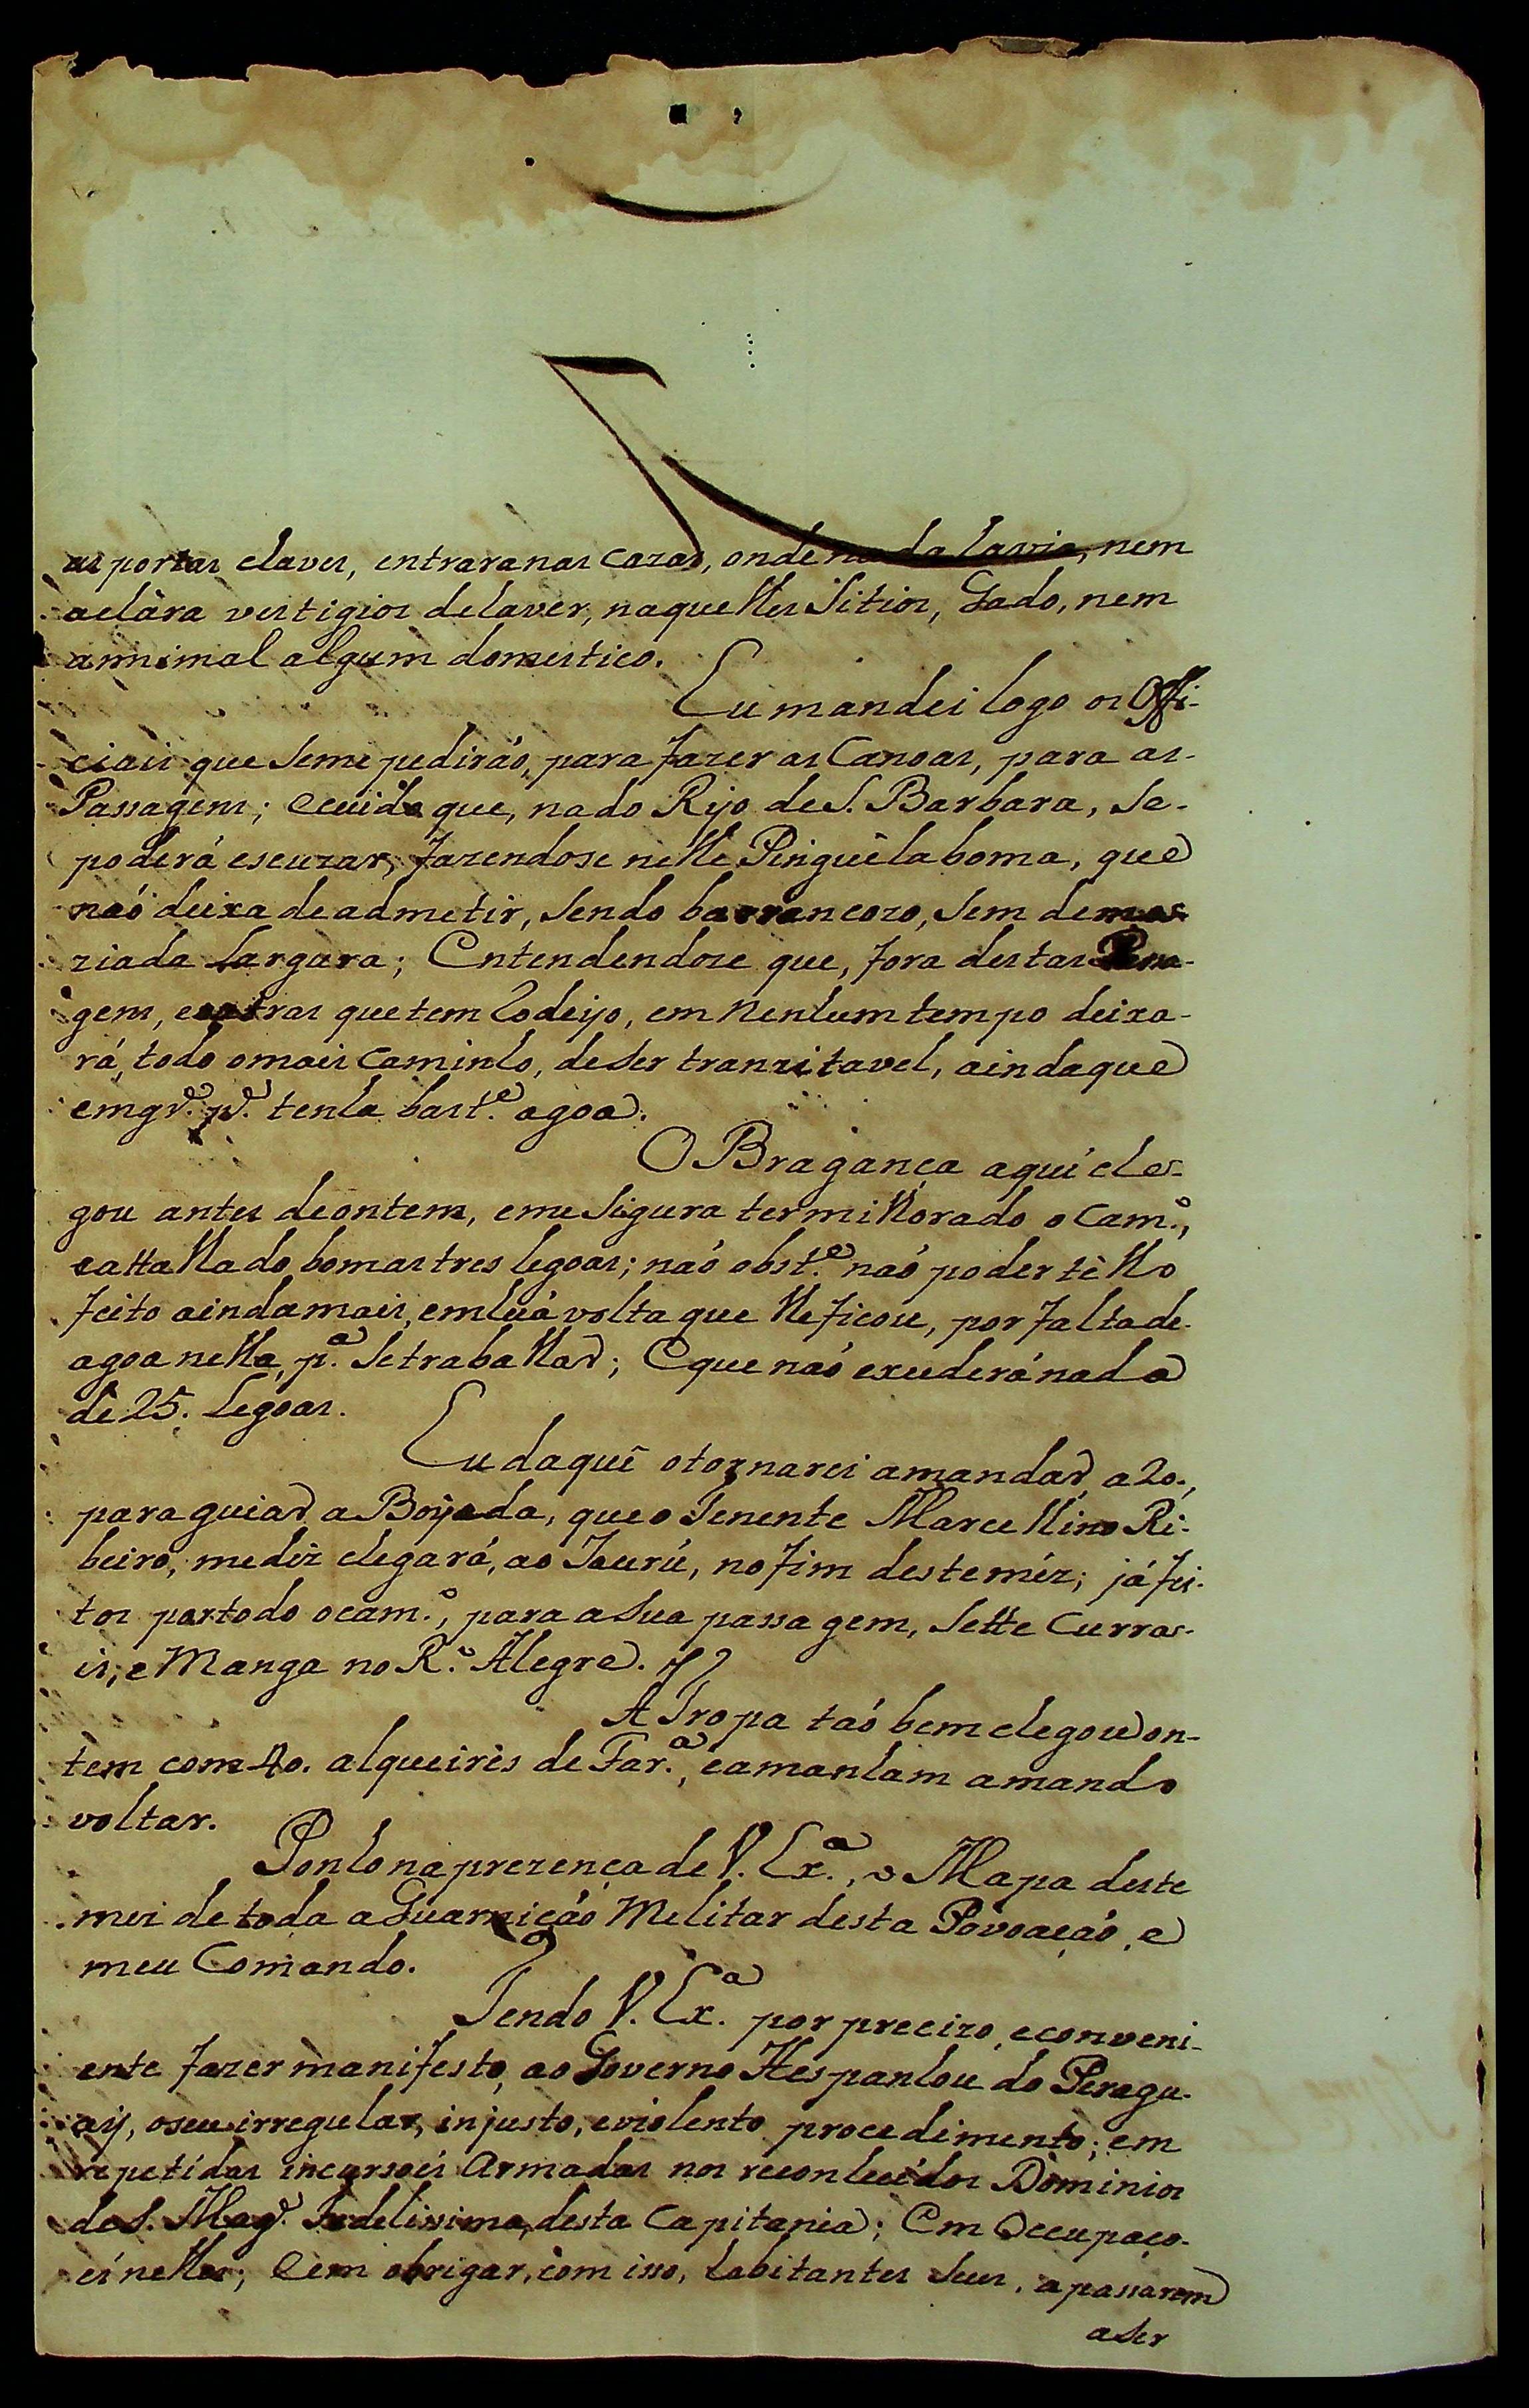 as portas chaves, entrara nas cazas, onde nada havia, nem
achára vestigios dehaver, naquelles Sitios, Gado, nem
annimal algum domestico.
Eu mandei logo os Offi-
ciais que Seme pedirão, para fazer as Canoas, para as-
Passagens; Ecuido que, nado Rijo de S. Barbara, Se-
poderá escuzar, fazendose nelle Pinguéla boma, que
naó deixa deadmetir, Sendo barrancozo, Sem dema-
ziada Largura; Entendendose que, fora destas Passa-
gens, eoutras quetem Lodeijo, em Nenhum tempo deixa-
rá, todo omais Caminho, deSer tranzitavel, aindaque
emgr.de p.e tenha bast.e agoa.
O Bragança aqui che-
gou antes deontem, eme Sigura termilhorado o Cam.o,
eattalhado bomas tres legoas; naó obst.e naó poder têllo
feito aindamais, emhuá volta que lhe ficou, por falta de
agoa nella, p.a Setrabalhar; Eque naó excederá nada
de 25. Legoas.
Eu daqui otornarei amandar, a 20.,
para guiar a Boyada, que o Tenente Marcellino Ri-
beiro, mediz chegará, ao Jaurú, no fim destemêz; já fei-
tos portodo ocam.o, para a Sua passagem, Sette Curra-
is, e Manga no R.o Alegre.
A Tropa taó bem chegou on-
tem com 40. alqueires de Far.a, eamanham amando
voltar.
Ponho na prezença de V. Ex.a, o Mapa deste
mez de toda a Guarnição Melitar desta Povoação, e
meu Comando.
Tendo V. Ex.a por precizo, econveni-
ente fazer manifesto, ao Governo Hespanhou do Peragu-
ay, oseu irregular, injusto, eviolento procedimento; em
repetidas incursoés Armadas nos reconhecidos Dominios
de S. Mag.e Fedelissima, desta Capitania; Em Occupaço-
es nelles; Eem obrigar, com isso, habitantes Seus, a passarem
aSer